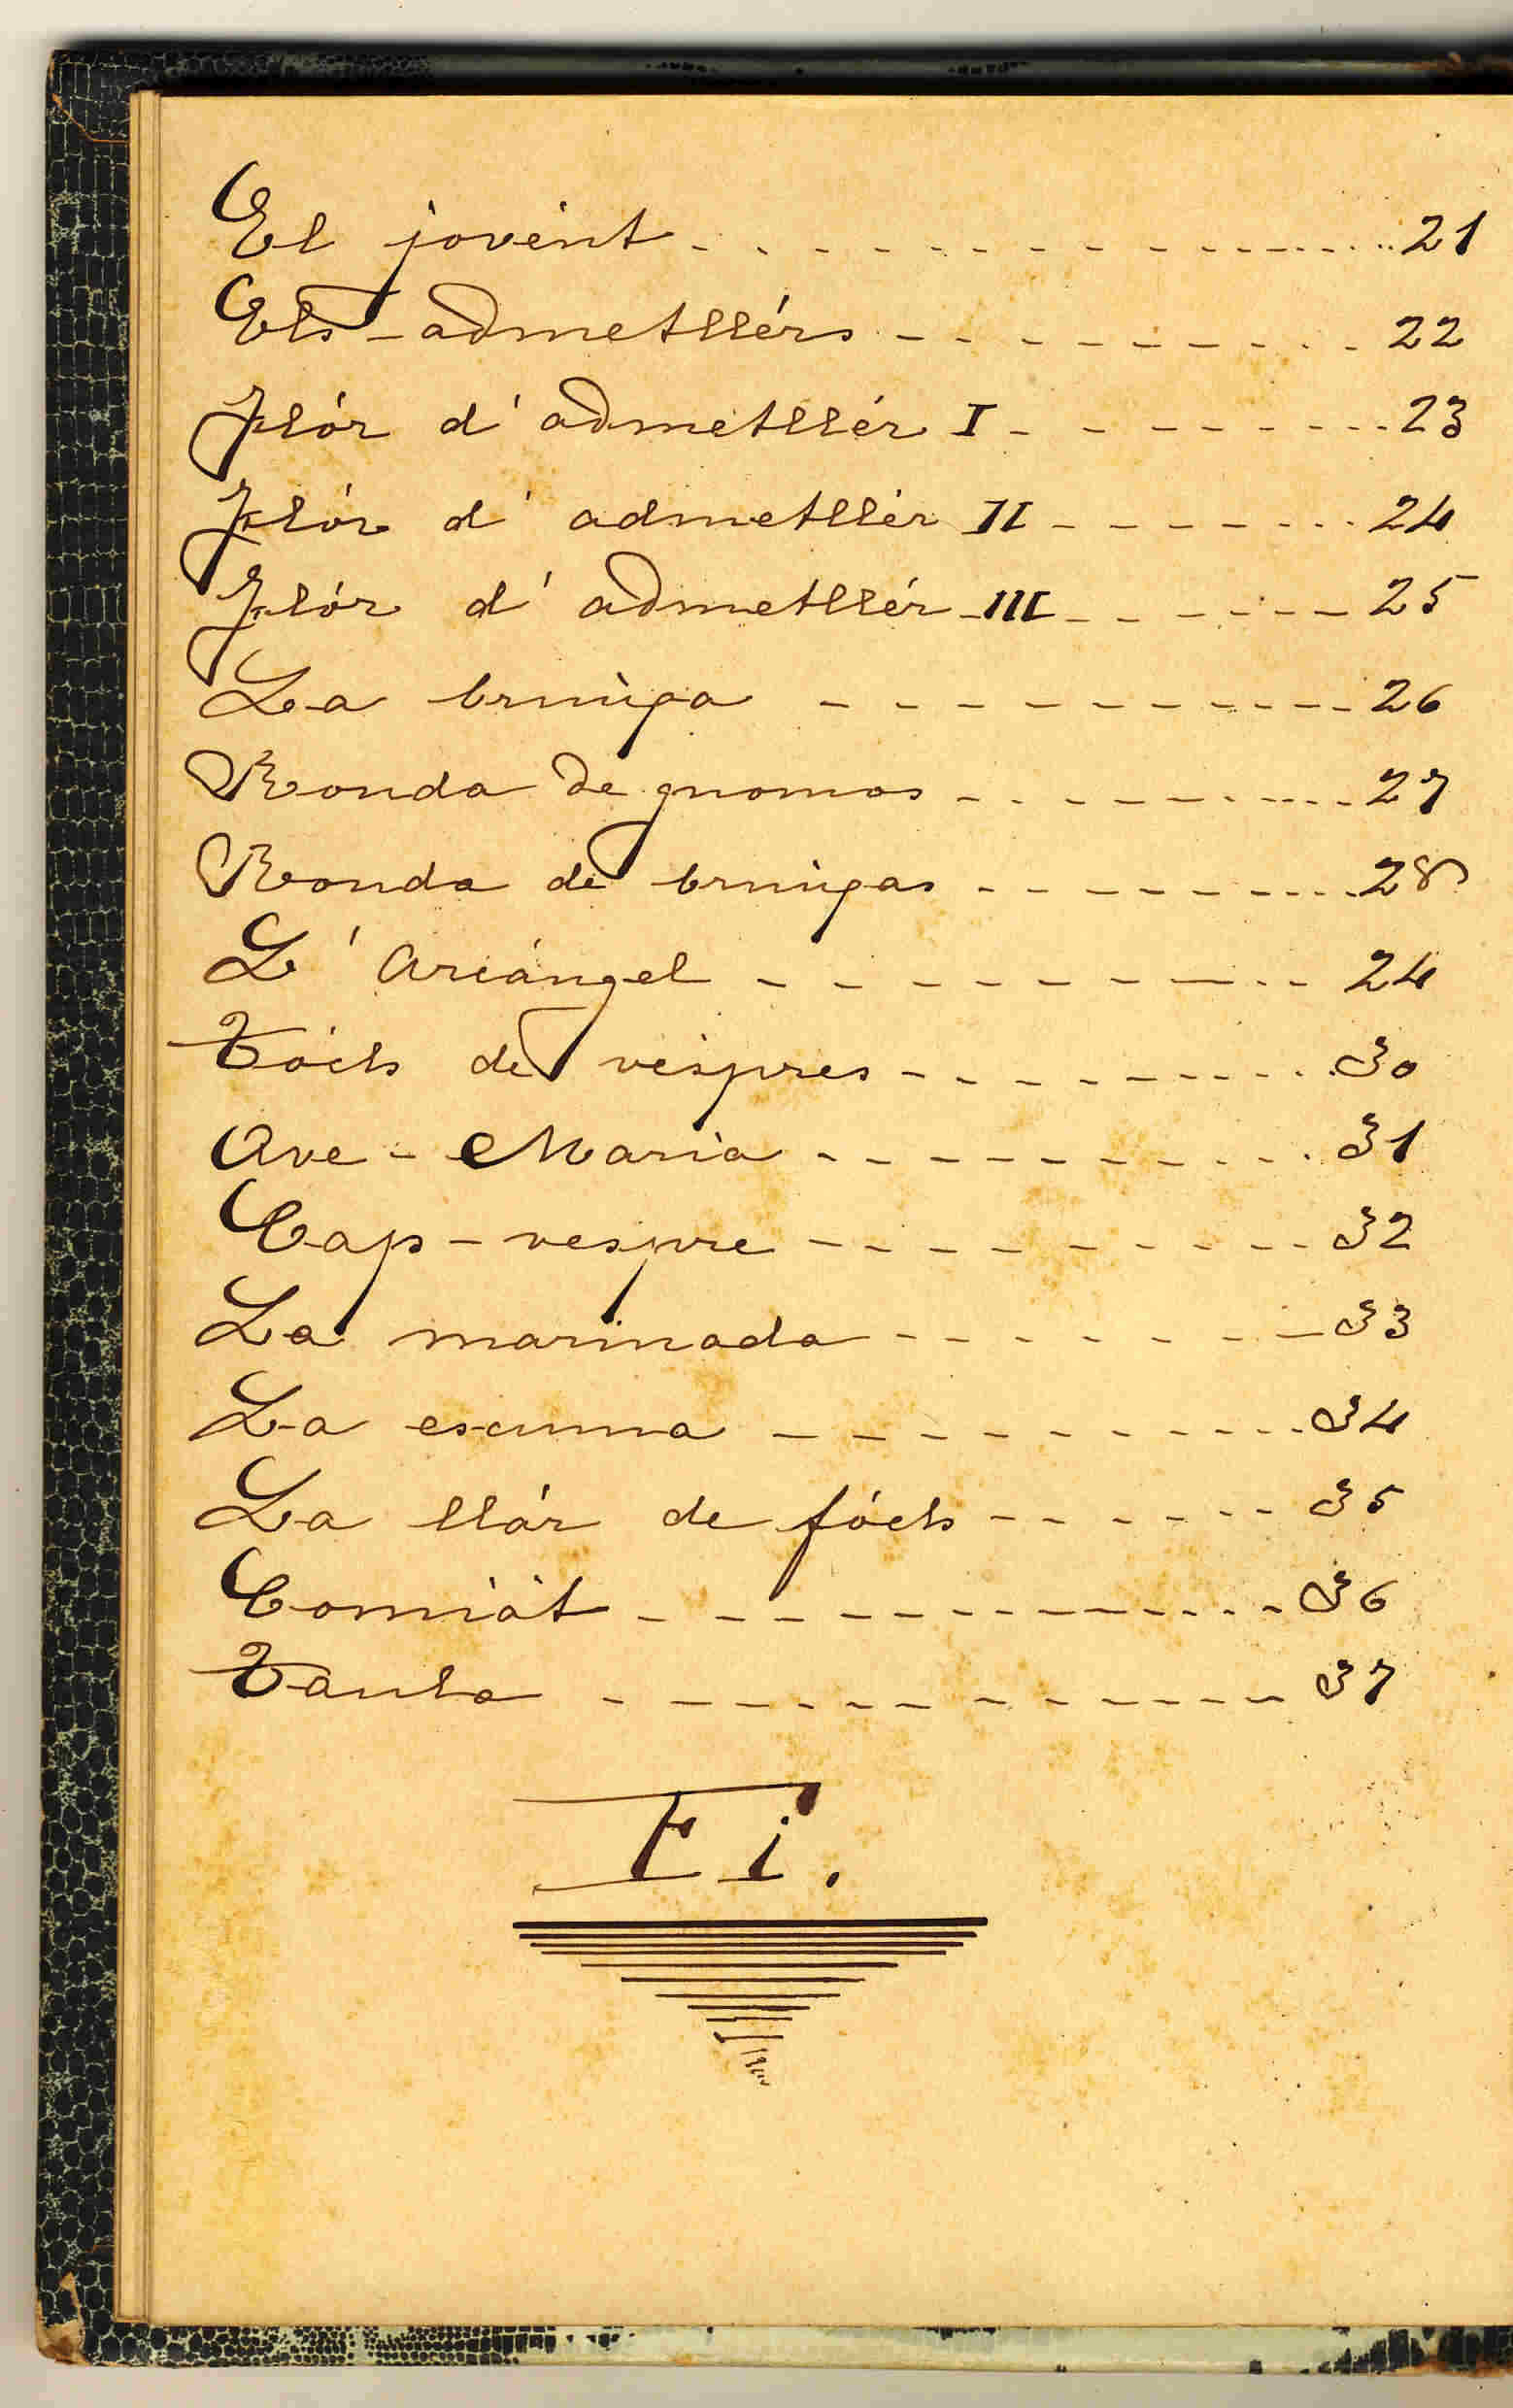 El jovènt 21
Els-admetllérs 22
Flór d'admetllér I 23
Flór d'admetllér II 24
Flór d'admetllér III 25
La bruixa 26
Ronda de gnomos 27
Ronda de bruixas 28
L'Arcángel 24
Tóchs de vèspres 30
Ave-Maria 31
Cap-vespre 32
La marinada 33
La escuma 34
La llár de fóch 35
Comiát 36
Taula 37
Fi.